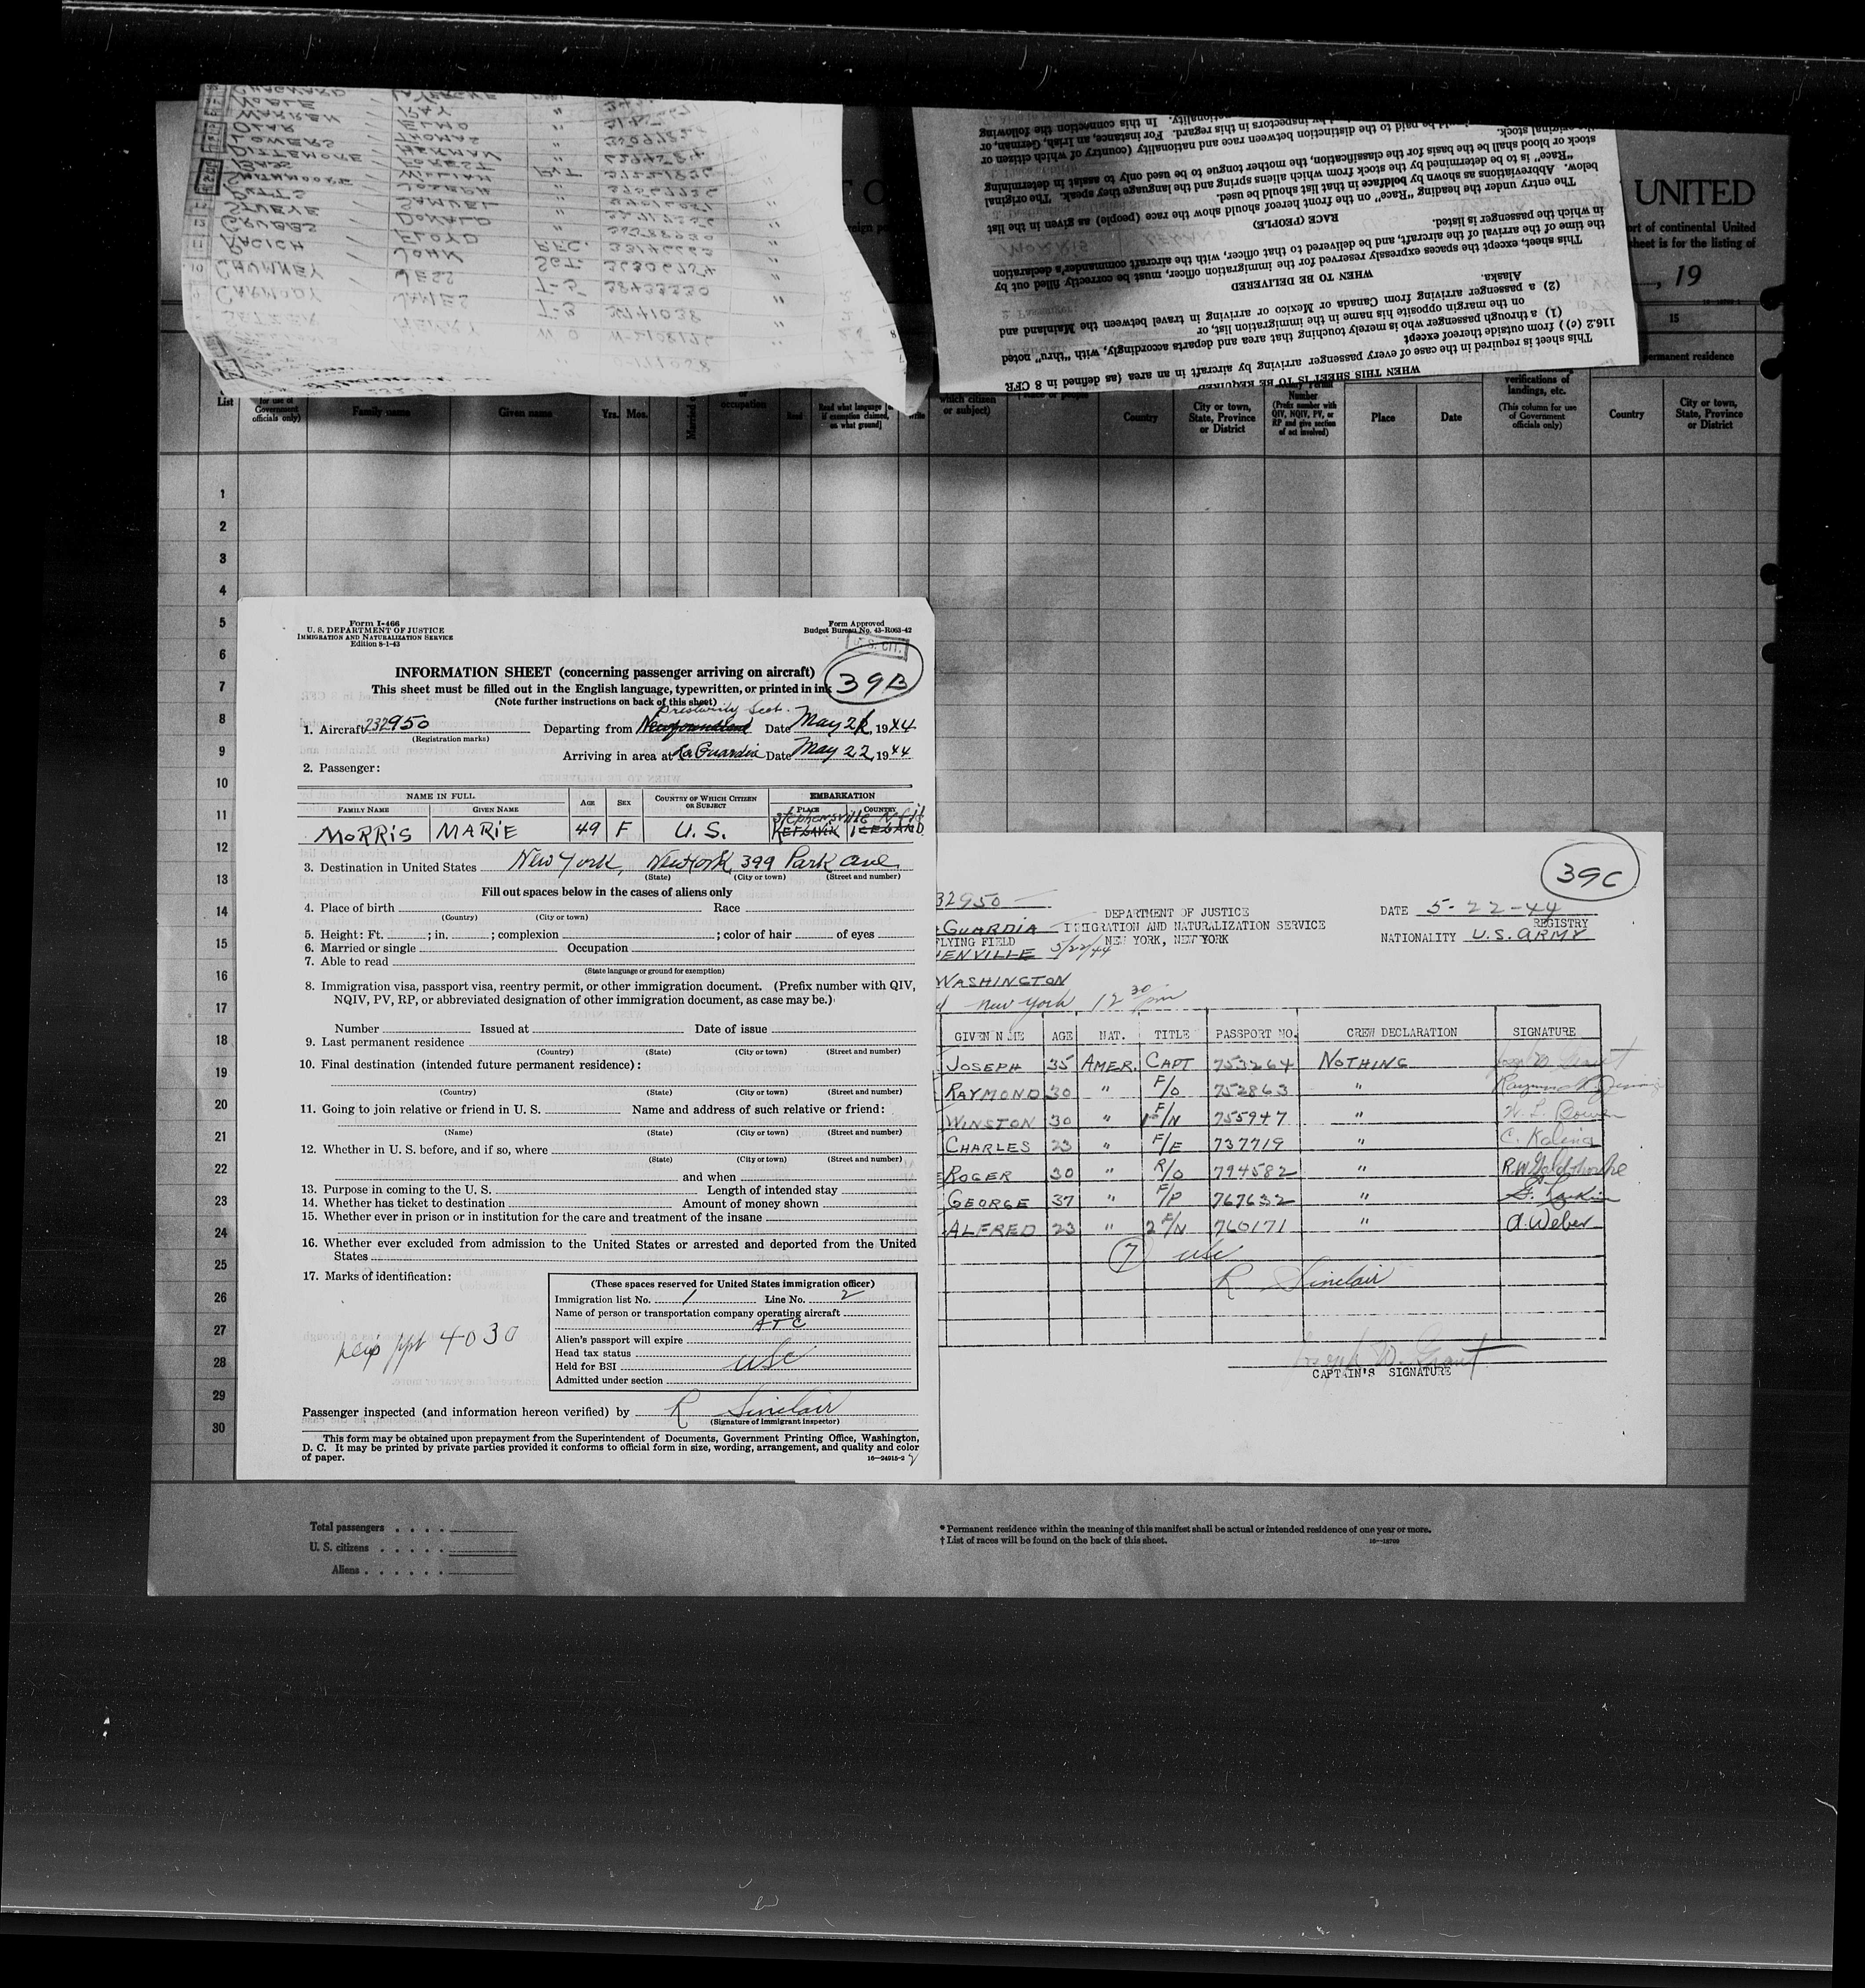 GARMODY JAMES T-3
CHUMNEY JESS T-5 38433330 "
RACICH JOHN SGT. 36306754 "
GRUBBS FLOYD PFC.
STUEVE DONALD "
PUTTS SAMUEL "
JOSEPH "
WILLIAM Pvt
BASS FOREST "
DITTEMORE HERMAN "
LOWERS THOMAS "
OLAR ELMO "
WARREN RAY "
NOBLE LAVERGNE
WHEN THIS SHEET IS TO BE REQUIRED
This sheet is required in the case of every passenger arriving by aircraft in an area (as defined in 8 CFR
116.2 (c)) from outside thereof except
(1) a through passenger who is merely touching that area and departs accordingly, with "thru" noted
on the margin opposite his name in the immigration list, or
(2) a passenger arriving from Canada or Mexico or arriving in travel between the Mainland and
Alaska.
WHEN TO BE DELIVERED
This sheet, except the spaces expressly reserved for the immigration officer, must be correctly filled out by
the time of the arrival of the aircraft, and be delivered to that officer, with the aircraft commander's declaration
in which the passenger is listed.
RACE (PEOPLE)
The entry under the heading "Race" on the front hereof should show the race (people) as given in the list
below. Abbreviations as shown by boldface in that list should be used.
"Race" is to be determined by the stock from which aliens spring and the language they speak. The original
stock or blood shall be the basis for the classification, the mother tongue to be used only to assist in determining
the original stock.
be paid to the distinction between race and nationality (country of which citizen or
by inspectors in this regard. For instance, an Irish, German, or
nationality. In this connection the following
UNITED
ort of continental United
sheet is for the listing of
, 19
15
permanent residence
List
for use of
Government
officials only)
Family name
Given name
Yrs. Mos.
Married o
or
occupation
Read
Read what language [
if exemption claimed,
on what ground]
Write
which citizen
or subject)
Country
City or town,
State, Province
or District
Number
(Prefix number with
QIV, NQIV, PV, or
RP and give section
of act involved)
Place
Date
verifications of
landings, etc.
(This column for use
of Government
officials only)
Country
City or town,
State, Province
or District
1
2
3
4
5
6
7
8
9
10
11
12
13
14
15
16
17
18
19
20
21
22
23
24
25
26
27
28
29
30
Form I-466
U. S. DEPARTMENT OF JUSTICE
IMMIGRATION AND NATURALIZATION SERVICE
Edition 8-1-43
Form Approved
Budget Bureau No. 43-R063-42
U.S. CIT.
39B
INFORMATION SHEET (concerning passenger arriving on aircraft)
This sheet must be filled out in the English language, typewritten, or printed in ink
(Note further instructions on back of this sheet)
Prestwick Scot.
1. Aircraft 232950 Departing from Newfoundland Date May 21, 1944
(Registration marks)
Arriving in area at La Guardia Date May 22, 1944
2. Passenger:
NAME IN FULL AGE SEX COUNTRY OF WHICH CITIZEN OR SUBJECT EMBARKATION
FAMILY NAME GIVEN NAME PLACE COUNTRY
Stephensville Nfld
MORRIS MARIE 49 F U.S. KEFLAVIK ICELAND
3. Destination in United States New York, New York, 399 Park ave.
(State) (City or town) (Street and number)
Fill out spaces below in the cases of aliens only
4. Place of birth Race
(Country) (City or town)
5. Height: Ft. ; in. ; complexion ; color of hair of eyes
6. Married or single Occupation
7. Able to read
(State language or ground for exemption)
8. Immigration visa, passport visa, reentry permit, or other immigration document. (Prefix number with QIV,
NQIV, PV, RP, or abbreviated designation of other immigration document, as case may be.)
Number Issued at Date of issue
9. Last permanent residence
(Country) (State) (City or town) (Street and number)
10. Final destination (intended future permanent residence):
(Country) (State) (City or town) (Street and number)
11. Going to join relative or friend in U. S. Name and address of such relative or friend:
(Name) (State) (City or town) (Street and number)
12. Whether in U. S. before, and if so, where
(State) (City or town) (Street and number)
and when
13. Purpose in coming to the U. S. Length of intended stay
14. Whether has ticket to destination Amount of money shown
15. Whether ever in prison or in institution for the care and treatment of the insane
16. Whether ever excluded from admission to the United States or arrested and deported from the United
States
17. Marks of identification:
ppt 4030
(These spaces reserved for United States immigration officer)
Immigration list No. 1 Line No. 2
Name of person or transportation company operating aircraft
ATC
Alien's passport will expire
Head tax status
Held for BSI USC
Admitted under section
Passenger inspected (and information hereon verified) by R Sinclair
(Signature of immigrant inspector)
This form may be obtained upon prepayment from the Superintendent of Documents, Government Printing Office, Washington,
D. C. It may be printed by private parties provided it conforms to official form in size, wording, arrangement, and quality and color
of paper. 16—24915-2
39C
32950
DEPARTMENT OF JUSTICE
IMMIGRATION AND NATURALIZATION SERVICE
NEW YORK, NEW YORK
DATE 5-22-44
REGISTRY
NATIONALITY U.S. ARMY
GUARDIA
FLYING FIELD
HENVILLE 5/22/44
WASHINGTON
New York 12 30 pm
GIVEN NAME AGE NAT. TITLE PASSPORT NO. CREW DECLARATION SIGNATURE
JOSEPH 35 AMER. CAPT 753264 NOTHING Joseph D. Grant
RAYMOND 30 " F/O 752863 "
WINSTON 30 " 1 F/N 755947 " W. L. Bowen
CHARLES 23 " F/E 737719 " C. Kalina
ROGER 30 " R/O 794582 " R.W. Goldthorpe
GEORGE 37 " F/P 767632 " G. Larkin
ALFRED 23 " 2 F/N 760171 " A. Weber
7 USC
R Sinclair
Joseph D. Grant
CAPTAIN'S SIGNATURE
Total passengers
U. S. citizens
Aliens
* Permanent residence within the meaning of this manifest shall be actual or intended residence of one year or more.
† List of races will be found on the back of this sheet.